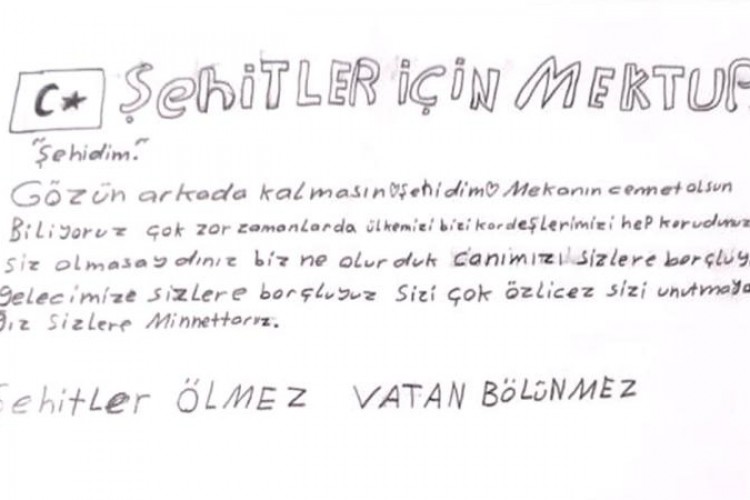 ŞehiTLER içiN MEKTUP
"Şehidim."
Gözün arkada kalmasın♡şehidim♡ Mekanın cennet olsun
Biliyoruz çok zor zamanlarda ülkemizi bizi kardeşlerimizi hep korudunuz
siz olmasaydınız biz ne olurduk canımızı sizlere borçluy
gelecimize sizlere borçluyuz sizi çok özlicez sizi unutmaya
ğız sizlere Minnettarız.
Şehitler ÖLMEZ VATAN BÖLÜNMEZ